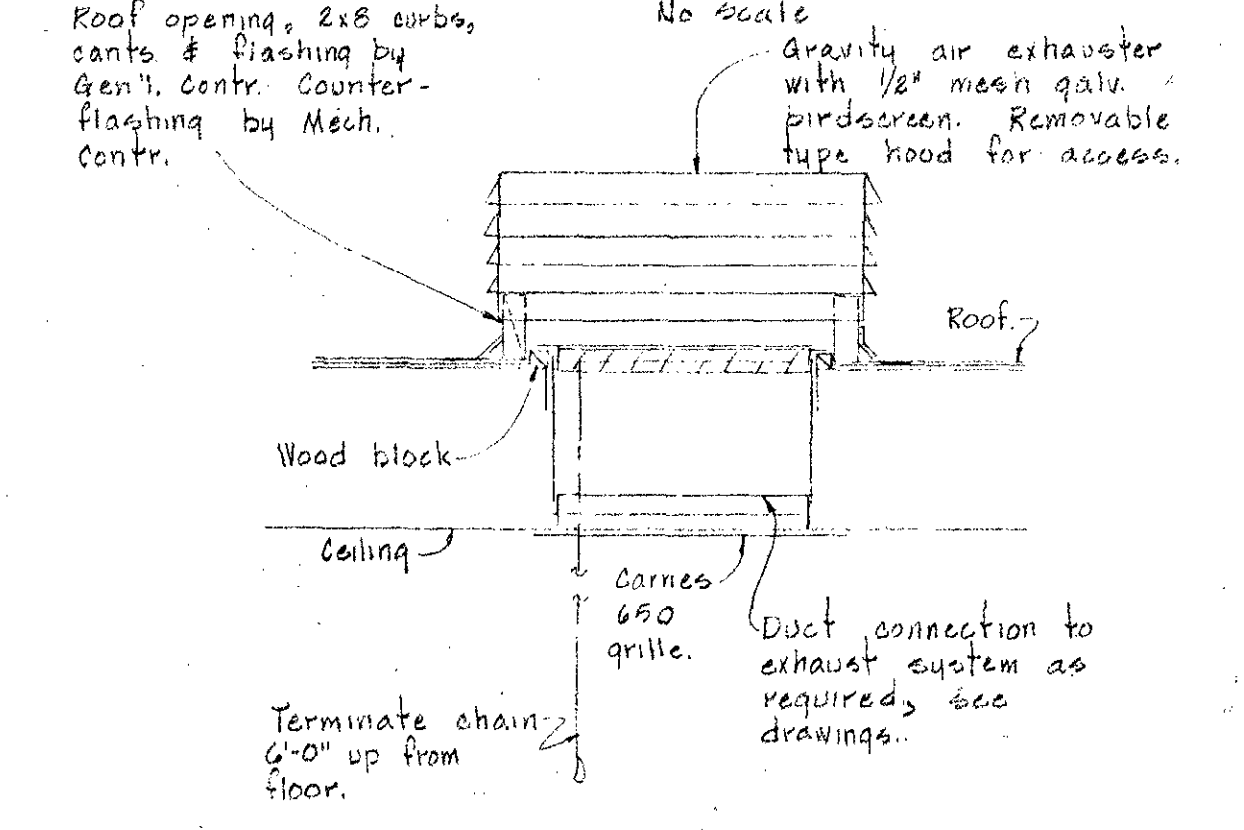 Roof opening, 2x8 curbs,
cants & flashing by
Gen'l. Contr. Counter-
flashing by Mech.
Contr.
No scale
Gravity air exhauster
with 1/2" mesh galv.
birdscreen. Removable
type hood for access.
Roof.
Wood block
Ceiling
Carnes
650
grille.
Duct connection to
exhaust system as
required, see
drawings..
Terminate chain
6'-0" up from
floor.